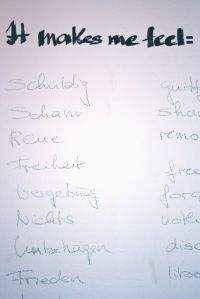 It makes me feel:
Schuldig guilt
Scham sha
Reue remo
Freiheit free
Vergebung forg
Nichts noth
Unbehagen disc
Frieden